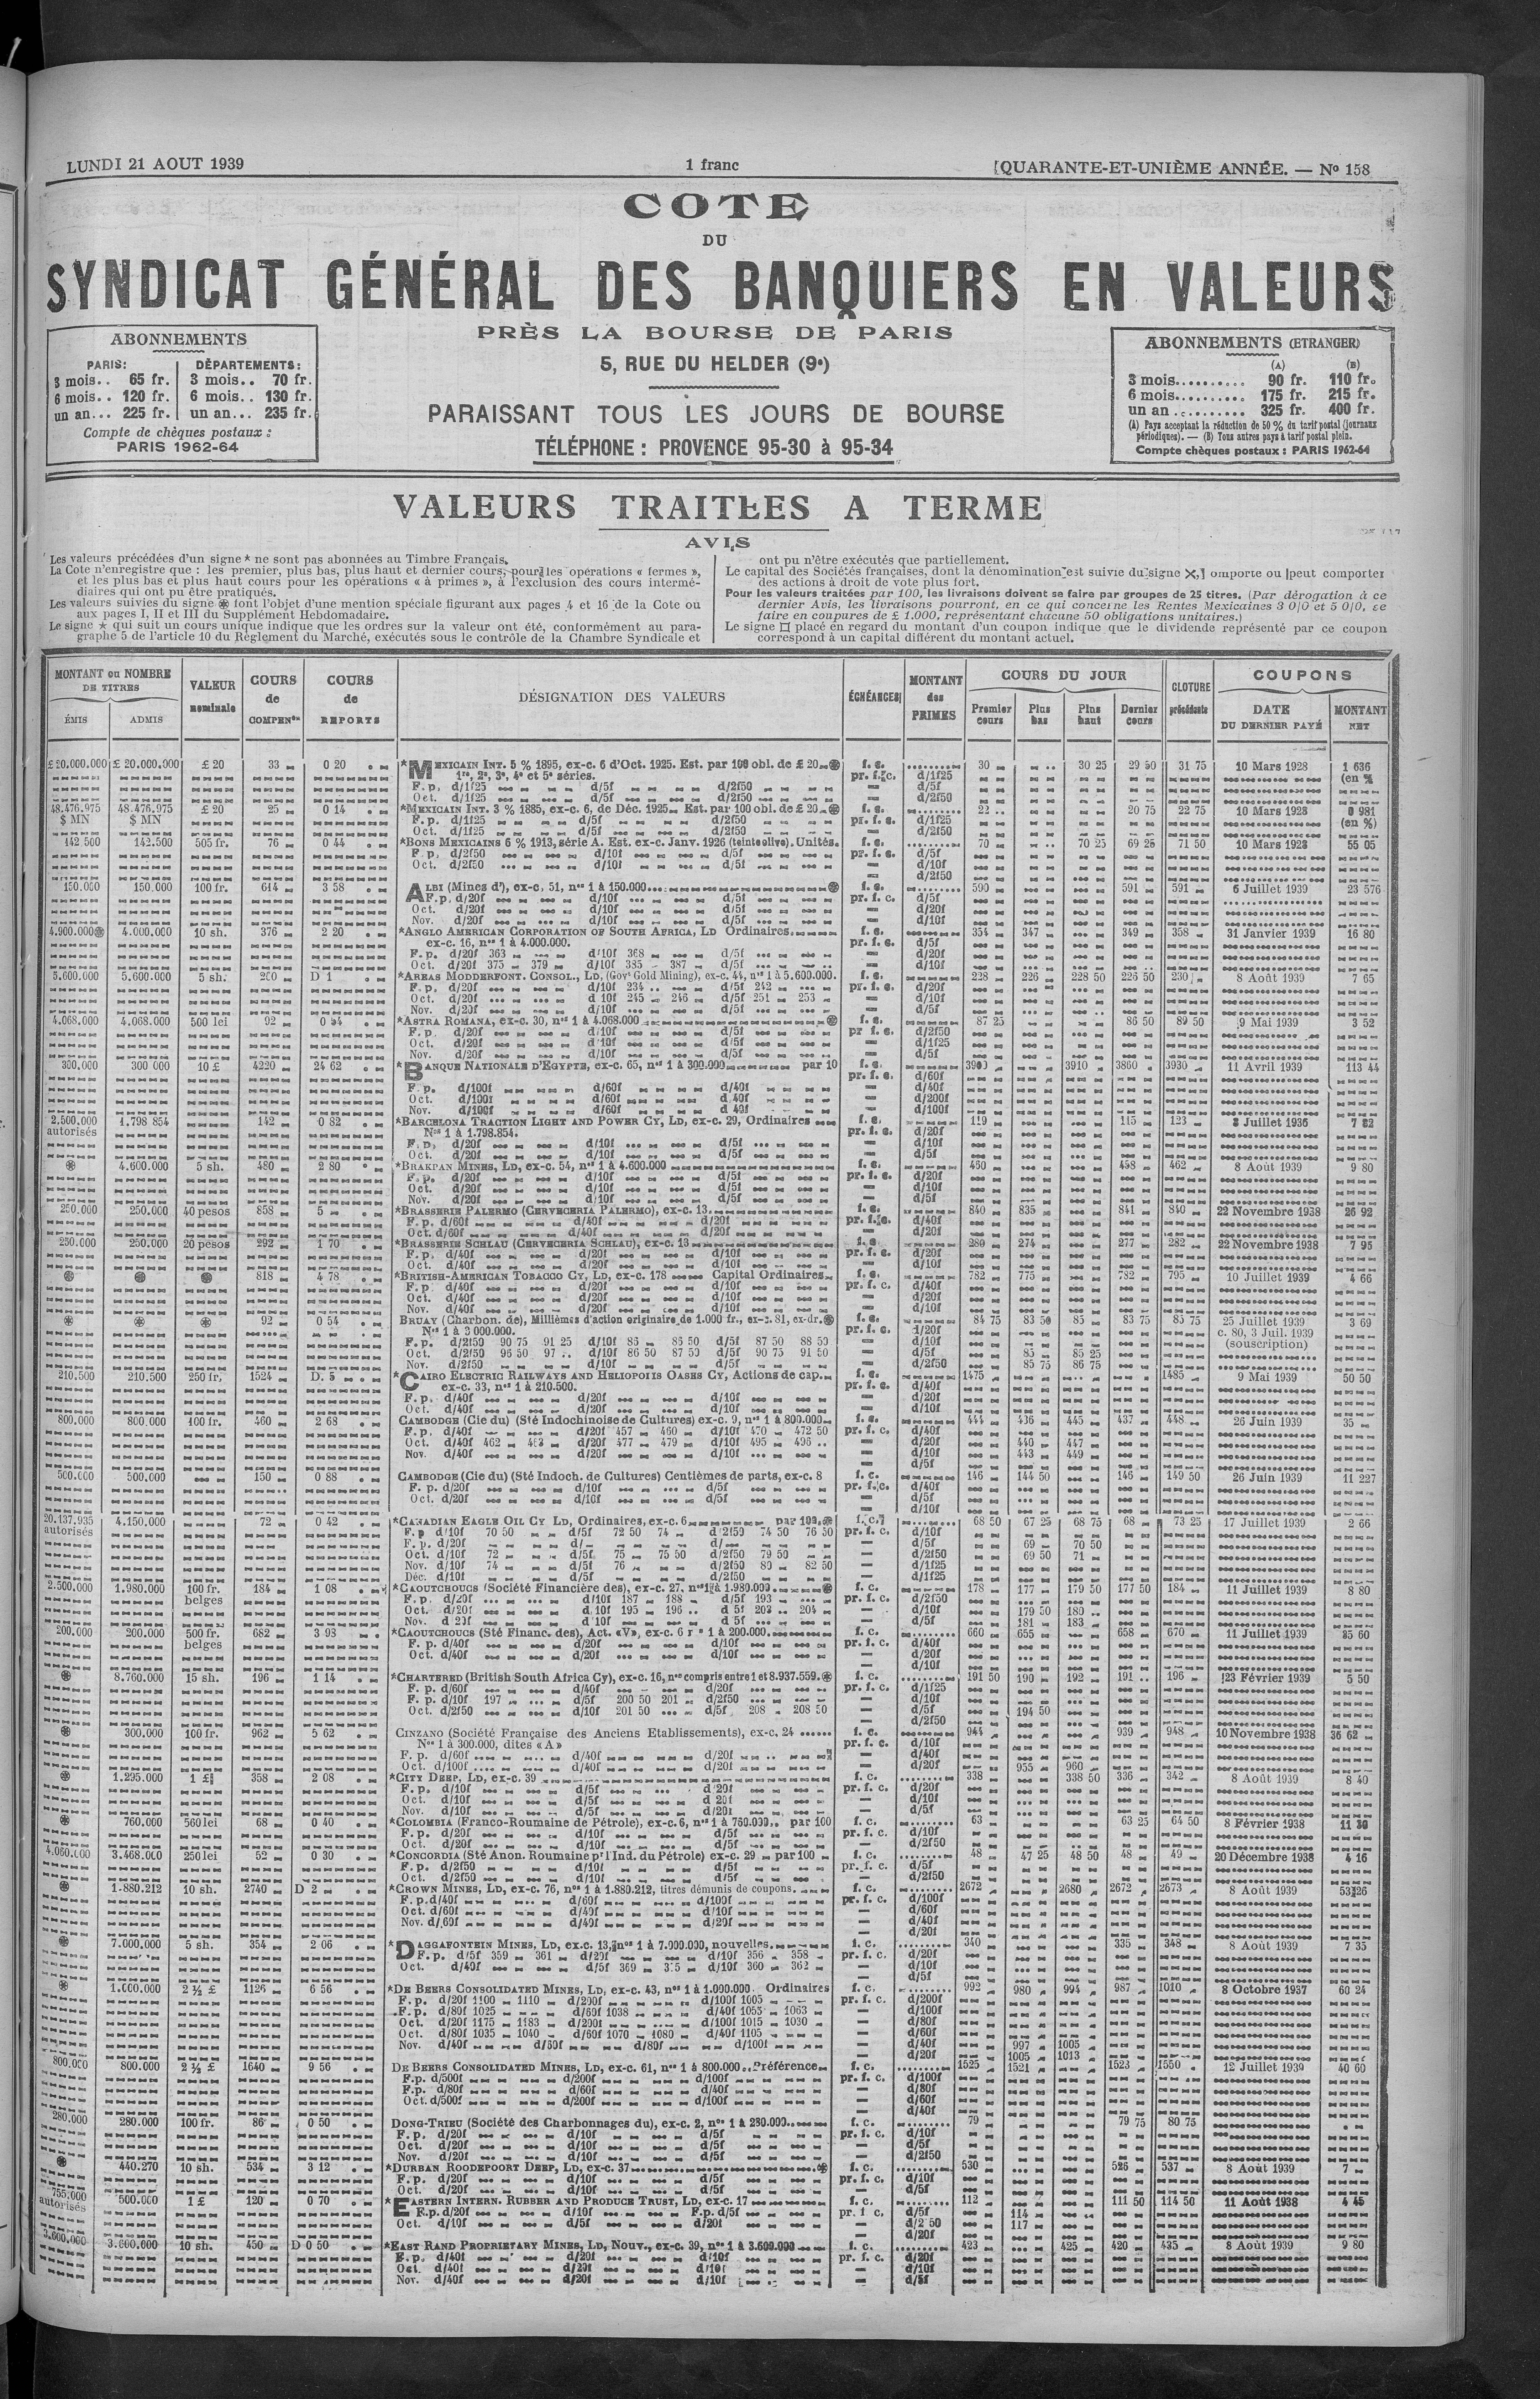 LUNDI 21 AOUT 1939 1 franc QUARANTE-ET-UNIÈME ANNÉE. — No 158
COTE
DU
SYNDICAT GÉNÉRAL DES BANQUIERS EN VALEURS
PRÈS LA BOURSE DE PARIS
5, RUE DU HELDER (9e)
PARAISSANT TOUS LES JOURS DE BOURSE
TÉLÉPHONE : PROVENCE 95-30 à 95-34
ABONNEMENTS
PARIS: DÉPARTEMENTS:
3 mois.. 65 fr. 3 mois.. 70 fr.
6 mois.. 120 fr. 6 mois.. 130 fr.
un an... 225 fr. un an... 235 fr.
Compte de chèques postaux :
PARIS 1962-64
ABONNEMENTS (ETRANGER)
(A) (B)
3 mois.......... 90 fr. 110 fr.
6 mois.......... 175 fr. 215 fr.
un an .......... 325 fr. 400 fr.
(A) Pays acceptant la réduction de 50 % du tarif postal (journaux
périodiques). — (B) Tous autres pays à tarif postal plein.
Compte chèques postaux : PARIS 1962-64
VALEURS TRAITÉES A TERME
AVIS
Les valeurs précédées d'un signe * ne sont pas abonnées au Timbre Français.
La Cote n'enregistre que : les premier, plus bas, plus haut et dernier cours, pour les opérations « fermes »,
et les plus bas et plus haut cours pour les opérations « à primes », à l'exclusion des cours intermé-
diaires qui ont pu être pratiqués.
Les valeurs suivies du signe ֍ font l'objet d'une mention spéciale figurant aux pages 4 et 16 de la Cote ou
aux pages I, II et III du Supplément Hebdomadaire.
Le signe ★ qui suit un cours unique indique que les ordres sur la valeur ont été, conformément au para-
graphe 5 de l'article 10 du Règlement du Marché, exécutés sous le contrôle de la Chambre Syndicale et
ont pu n'être exécutés que partiellement.
Le capital des Sociétés françaises, dont la dénomination est suivie du signe ✕, comporte ou peut comporter
des actions à droit de vote plus fort.
Pour les valeurs traitées par 100, les livraisons doivent se faire par groupes de 25 titres. (Par dérogation à ce
dernier Avis, les livraisons pourront, en ce qui concerne les Rentes Mexicaines 3 0/0 et 5 0/0, se
faire en coupures de £ 1.000, représentant chacune 50 obligations unitaires.)
Le signe ¤ placé en regard du montant d'un coupon indique que le dividende représenté par ce coupon
correspond à un capital différent du montant actuel.
MONTANT ou NOMBRE DE TITRES VALEUR nominale COURS de COMPENon COURS de REPORTS DÉSIGNATION DES VALEURS ÉCHÉANCES MONTANT des PRIMES COURS DU JOUR CLOTURE précédente COUPONS
ÉMIS ADMIS Premier cours Plus bas Plus haut Dernier cours DATE DU DERNIER PAYÉ MONTANT NET
£ 20.000.000 £ 20.000.000 £ 20 33 0 20 *MEXICAIN INT. 5 % 1895, ex-c. 6 d'Oct. 1925. Est. par 100 obl. de £ 20 f. c. 30 30 25 29 50 31 75 10 Mars 1928 1 636
1re, 2e, 3e, 4e et 5e séries. pr. f. c. d/1f25 (en %
F. p. d/1f25 d/5f d/2f50 — d/5f
Oct. d/1f25 d/5f d/2f50 — d/2f50
48.476.975 48.476.975 £ 20 25 0 14 *MEXICAIN INT. 3 % 1885, ex-c. 6, de Déc. 1925 Est. par 100 obl. de £ 20 f. c. 22 20 75 22 75 10 Mars 1928 0 981
$ MN $ MN F. p. d/1f25 d/5f d/2f50 pr. f. c. d/1f25 (en %)
Oct. d/1f25 d/5f d/2f50 — d/2f50
142 500 142.500 505 fr. 76 0 44 *BONS MEXICAINS 6 % 1913, série A. Est. ex-c. Janv. 1926 (teinte olive). Unités. f. c. 70 70 25 69 25 71 50 10 Mars 1928 55 05
F. p. d/2f50 d/10f d/5f pr. f. c. d/5f
Oct. d/2f50 d/10f d/5f — d/10f
— d/2f50
150.000 150.000 100 fr. 614 3 58 ALBI (Mines d'), ex-c. 51, nos 1 à 150.000 f. c. 590 591 591 6 Juillet 1939 23 576
F. p. d/20f d/10f d/5f pr. f. c. d/5f
Oct. d/20f d/10f d/5f — d/20f
Nov. d/20f d/10f d/5f — d/10f
4.900.000 4.000.000 10 sh. 376 2 20 *ANGLO AMERICAN CORPORATION OF SOUTH AFRICA, LD Ordinaires f. c. 354 347 349 358 31 Janvier 1939 16 80
ex-c. 16, nos 1 à 4.000.000. pr. f. c. d/5f
F. p. d/20f 363 d/10f 368 d/5f — d/20f
Oct. d/20f 375 379 d/10f 385 387 d/5f — d/10f
5.600.000 5.600.000 5 sh. D 1 *AREAS MODDERFONT. CONSOL., LD, (Govt Gold Mining), ex-c. 44, nos 1 à 5.600.000. f. c. 228 226 228 50 226 50 230 8 Août 1939 7 65
F. p. d/20f d/10f 234 d/5f 242 pr. f. c. d/20f
Oct. d/20f d 10f 245 246 d/5f 251 253 — d/10f
Nov. d/20f d/10f d/5f — d/5f
4.068.000 4.068.000 500 lei 92 0 54 *ASTRA ROMANA, ex-c. 30, nos 1 à 4.068.000 f. c. 87 25 86 50 89 50 9 Mai 1939 3 52
F. p. d/20f d/10f d/5f pr f. c. d/2f50
Oct. d/20f d/10f d/5f — d/1f25
Nov. d/20f d/10f d/5f — d/5f
300.000 300 000 10 £ 4220 24 62 *BANQUE NATIONALE D'EGYPTE, ex-c. 65, nos 1 à 300.000 par 10 f. c. 3900 3910 3860 3930 11 Avril 1939 113 44
pr. f. c. d/60f
F. p. d/100f d/60f d/40f — d/40f
Oct. d/100f d/60f d 40f — d/200f
Nov. d/100f d/60f d 40f — d/100f
2.500.000 1.798 854 142 0 82 *BARCELONA TRACTION LIGHT AND POWER CY, LD, ex-c. 29, Ordinaires f. c. 119 115 123 3 Juillet 1936 7 82
autorisés Nos 1 à 1.798.854. pr. f. c. d/20f
F. p. d/20f d/10f d/5f — d/10f
Oct. d/20f d/10f d/5f — d/5f
֍ 4.600.000 5 sh. 480 2 80 *BRAKPAN MINES, LD, ex-c. 54, nos 1 à 4.600.000 f. c. 460 458 462 8 Août 1939 9 80
F. p. d/20f d/10f d/5f pr. f. c. d/20f
Oct. d/20f d/10f d/5f — d/10f
Nov. d/20f d/10f d/5f — d/5f
250.000 250.000 40 pesos 858 5 *BRASSERIE PALERMO (CERVECERIA PALERMO), ex-c. 13 f. c. 840 835 841 840 22 Novembre 1938 26 92
F. p. d/60f d/40f d/20f pr. f. c. d/40f
Oct. d/60f d/40f d/20f — d/20f
250.000 250.000 20 pesos 292 1 70 *BRASSERIE SCHLAU (CERVECERIA SCHLAU), ex-c. 13 f. c. 280 274 277 282 22 Novembre 1938 7 95
F. p. d/40f d/20f d/10f pr. f. c. d/20f
Oct. d/40f d/20f d/10f — d/10f
֍ ֍ ֍ 818 4 78 *BRITISH-AMERICAN TOBACCO CY, LD, ex-c. 178 Capital Ordinaires f. c. 782 775 782 795 10 Juillet 1939 4 66
F. p. d/40f d/20f d/10f pr. f. c. d/40f
Oct. d/40f d/20f d/10f — d/20f
Nov. d/40f d/20f d/10f — d/10f
֍ ֍ ֍ 92 0 54 BRUAY (Charbon. de), Millièmes d'action originaire de 1.000 fr., ex-c. 81, ex-dr. f. c. 84 75 83 50 85 83 75 85 75 25 Juillet 1939 3 69
Nos 1 à 3 000.000. pr. f. c. d/20f c. 80, 3 Juil. 1939
F. p. d/2f50 90 75 91 25 d/10f 85 86 50 d/5f 87 50 88 50 — d/10f (souscription)
Oct. d/2f50 96 50 97 d/10f 86 50 87 50 d/5f 90 75 91 50 — d/5f 85 85 25
Nov. d/2f50 d/10f d/5f — d/2f50 85 75 86 75
210.500 210.500 250 fr. 1524 D. 5 *CAIRO ELECTRIC RAILWAYS AND HELIOPOLIS OASES CY, Actions de cap. f. c. 1475 1485 9 Mai 1939 50 50
ex-c. 33, nos 1 à 210.500. pr. f. c. d/40f
F. p. d/40f d/20f d/10f — d/20f
Oct. d/40f d/20f d/10f — d/10f
800.000 800.000 100 fr. 460 2 68 CAMBODGE (Cie du) (Sté Indochinoise de Cultures) ex-c. 9, nos 1 à 800.000 f. c. 444 436 445 437 448 26 Juin 1939 35
F. p. d/40f d/20f 457 460 d/10f 470 472 50 pr. f. c. d/40f
Oct. d/40f 462 463 d/20f 477 479 d/10f 495 496 — d/20f 440 447
Nov. d/40f d/20f d/10f — d/10f 443 449
— d/5f
500.000 500.000 150 0 88 CAMBODGE (Cie du) (Sté Indoch. de Cultures) Centièmes de parts, ex-c. 8 f. c. 146 144 50 146 149 50 26 Juin 1939 11 227
F. p. d/20f d/10f d/5f pr. f. c. d/40f
Oct. d/20f d/10f d/5f — d/5f
— d/10f
20.137.935 4.150.000 72 0 42 *CANADIAN EAGLE OIL CY LD, Ordinaires, ex-c. 6 par 100 f. c. 68 50 67 25 68 75 68 73 25 17 Juillet 1939 2 66
autorisés F. p d/10f 70 50 d/5f 72 50 74 d/2f50 74 50 76 50 pr. f. c. d/10f
F. p. d/20f d/ d/ — d/5f 69 70 50
Oct. d/10f 72 d/5f 75 75 50 d/2f50 79 50 — d/2f50 69 50 71
Nov. d/10f 74 d/5f 76 d/2f50 80 82 50 — d/1f25
Déc. d/10f d/5f d/2f50 — d/1f25
2.500.000 1.980.000 100 fr. 184 1 08 *CAOUTCHOUCS (Société Financière des), ex-c. 27, nos 1 à 1.980.000 f. c. 178 177 179 50 177 50 184 11 Juillet 1939 8 80
belges F. p. d/20f d/10f 187 188 d/5f 193 pr. f. c. d/2f50
Oct. d/20f d 10f 195 196 d 5f 203 204 — d/10f 179 50 180
Nov. d 20f d 10f d 5f — d/5f 181 183
200.000 200.000 500 fr. 682 3 98 *CAOUTCHOUCS (Sté Financ. des), Act. «V», ex-c. 6 1 à 200.000 f. c. 660 655 658 670 11 Juillet 1939 35 60
belges F. p. d/40f d/20f d/10f pr. f. c. d/40f
Oct. d/40f d/20f d/10f — d/20f
— d/10f
֍ 8.760.000 15 sh. 196 1 14 *CHARTERED (British South Africa Cy), ex-c. 16, nos compris entre 1 et 8.937.559. f. c. 191 50 190 192 191 196 23 Février 1939 5 50
F. p. d/60f d/40f d/20f pr. f. c. d/1f25
F. p. d/10f 197 d/5f 200 50 201 d/2f50 — d/10f
Oct. d/2f50 d/10f 201 50 d/5f 208 208 50 — d/5f 194 50
— d/2f50
֍ 300.000 100 fr. 962 5 62 CINZANO (Société Française des Anciens Etablissements), ex-c. 24 f. c. 944 939 948 10 Novembre 1938 36 62
Nos 1 à 300.000, dites «A» pr. f. c. d/10f
F. p. d/60f d/40f d/20f — d/40f
Oct. d/100f d/40f d/20f — d/20f 955 960
֍ 1.295.000 1 £ 358 2 08 *CITY DEEP, LD, ex-c. 39 f. c. 338 338 50 336 342 8 Août 1939 8 40
F. p. d/10f d/5f d 20f pr. f. c. d/20f
Oct. d/10f d/5f d 20f — d/10f
Nov. d/10f d/5f d/20f — d/5f
֍ 760.000 560 lei 68 0 40 *COLOMBIA (Franco-Roumaine de Pétrole), ex-c. 6, nos 1 à 760.000 par 100 f. c. 63 63 25 64 50 8 Février 1938 11 30
F. p. d/20f d/10f d/5f pr. f. c. d/10f
Oct. d/20f d/10f d/5f — d/2f50
4.060.000 3.468.000 250 lei 52 0 30 *CONCORDIA (Sté Anon. Roumaine pr l'Ind. du Pétrole) ex-c. 29 par 100 f. c. 48 47 25 48 50 48 49 20 Décembre 1938 4 16
F. p. d/2f50 d/10f d/5f pr. f. c. d/5f
Oct. d/2f50 d/10f d/5f — d/2f50
֍ 1.880.212 10 sh. 2740 D 2 *CROWN MINES, LD, ex-c. 76, nos 1 à 1.880.212, titres démunis de coupons. f. c. 2672 2680 2672 2673 8 Août 1939 53 26
F. p. d/40f d/60f d/100f pr. f. c. d/100f
Oct. d/60f d/40f d/10f — d/60f
Nov. d/60f d/40f d/20f — d/40f
— d/20f
֍ 7.000.000 5 sh. 354 2 06 *DAGGAFONTEIN MINES, LD, ex.c. 13, nos 1 à 7.000.000, nouvelles f. c. 340 335 348 8 Août 1939 7 35
F. p. d/5f 359 361 d/20f d/10f 356 358 pr. f. c. d/20f
Oct. d/40f d/5f 369 375 d/10f 360 362 — d/10f
— d/5f
֍ 1.000.000 2 ½ £ 1126 6 56 *DE BEERS CONSOLIDATED MINES, LD, ex-c. 43, nos 1 à 1.000.000. Ordinaires f. c. 992 980 994 987 1010 8 Octobre 1937 60 24
F. p. d/20f 1100 1110 d/200f d/100f 1005 pr. f. c. d/200f
F. p. d/80f 1025 d/60f 1038 d/40f 1055 1063 — d/100f
Oct. d/20f 1175 1183 d/200f d/100f 1015 1030 — d/80f
Oct. d/80f 1035 1040 d/60f 1070 1080 d/40f 1105 — d/60f
Nov. d/40f d/50f d/80f d/100f — d/40f 997 1005
— d/20f 1005 1013
800.000 800.000 2 ½ £ 1640 9 56 DE BEERS CONSOLIDATED MINES, LD, ex-c. 61, nos 1 à 800.000 Préférence f. c. 1525 1521 1523 1550 12 Juillet 1939 40 60
F.p. d/500f d/200f d/100f pr. f. c. d/100f
F.p. d/80f d/60f d/40f — d/80f
Oct. d/500f d/200f d/100f — d/60f
— d/40f
280.000 280.000 100 fr. 86 0 50 DONG-TRIEU (Société des Charbonnages du), ex-c. 2, nos 1 à 280.000 f. c. 79 79 75 80 75
F. p. d/20f d/10f d/5f pr. f. c. d/10f
Oct. d/20f d/10f d/5f — d/5f
Nov. d/20f d/10f d/5f — d/2f50
֍ 440.270 10 sh. 534 3 12 *DURBAN ROODEPOORT DEEP, LD, ex-c. 37 f. c. 530 526 537 8 Août 1939 7
F. p. d/20f d/10f d/5f pr. f. c. d/10f
Oct. d/20f d/10f d/5f — d/5f
755.000 500.000 1 £ 120 0 70 *EASTERN INTERN. RUBBER AND PRODUCE TRUST, LD, ex-c. 17 f. c. 112 111 50 114 50 11 Août 1938 4 45
autorisés F.p. d/20f d/10f F.p. d/5f pr. f c. d/5f 114
Oct. d/10f d/5f d/20f — d/2 50 117
— d/20f
3.600.000 3.600.000 10 sh. 450 D 0 50 *EAST RAND PROPRIETARY MINES, LD, Nouv., ex-c. 39, nos 1 à 3.600.000 f. c. 423 425 420 435 8 Août 1939 9 80
F. p. d/40f d/20f d/10f pr. f. c. d/20f
Oct. d/40f d/20f d/10f — d/10f
Nov. d/40f d/20f d/10f — d/5f